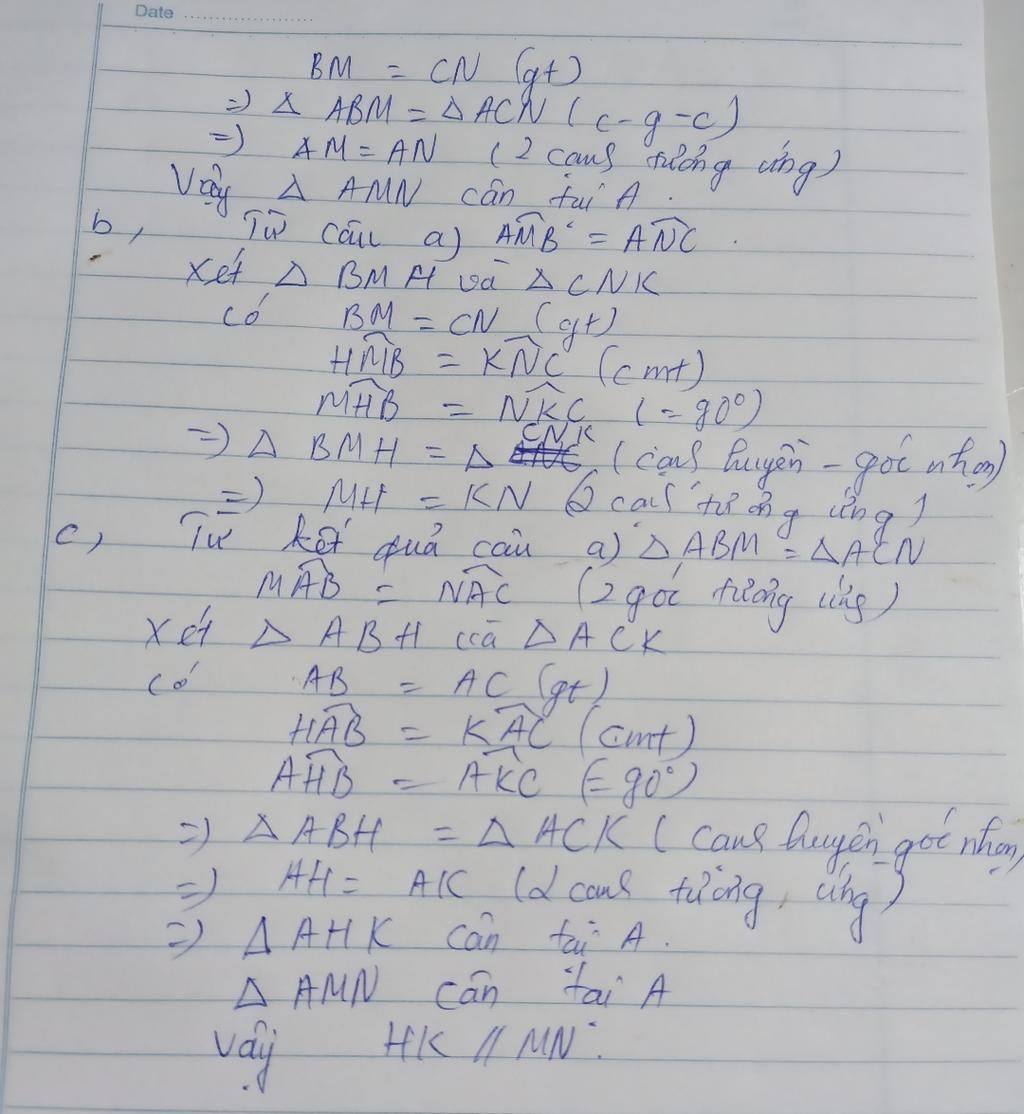 Date ....................
BM = CN (gt)
=) Δ ABM = Δ ACN (c-g-c)
=) AM = AN (2 cạnh tương ứng)
Vậy Δ AMN cân tại A.
b, Từ câu a) AM̂B = AN̂C.
Xét Δ BMH và Δ CNK
có BM = CN (gt)
HM̂B = KN̂C (cmt)
MĤB = NK̂C (= 90°)
=) Δ BMH = Δ CNK (cạnh huyền - góc nhọn)
=) MH = KN (2 cạnh tương ứng)
c, Từ kết quả câu a) Δ ABM = Δ ACN
MÂB = NÂC (2 góc tương ứng)
Xét Δ ABH và Δ ACK
có AB = AC (gt)
HÂB = KÂC (cmt)
AĤB = AK̂C (= 90°)
=) Δ ABH = Δ ACK (cạnh huyền - góc nhọn)
=) AH = AK (2 cạnh tương ứng)
=) Δ AHK cân tại A.
Δ AMN cân tại A
Vậy HK // MN.